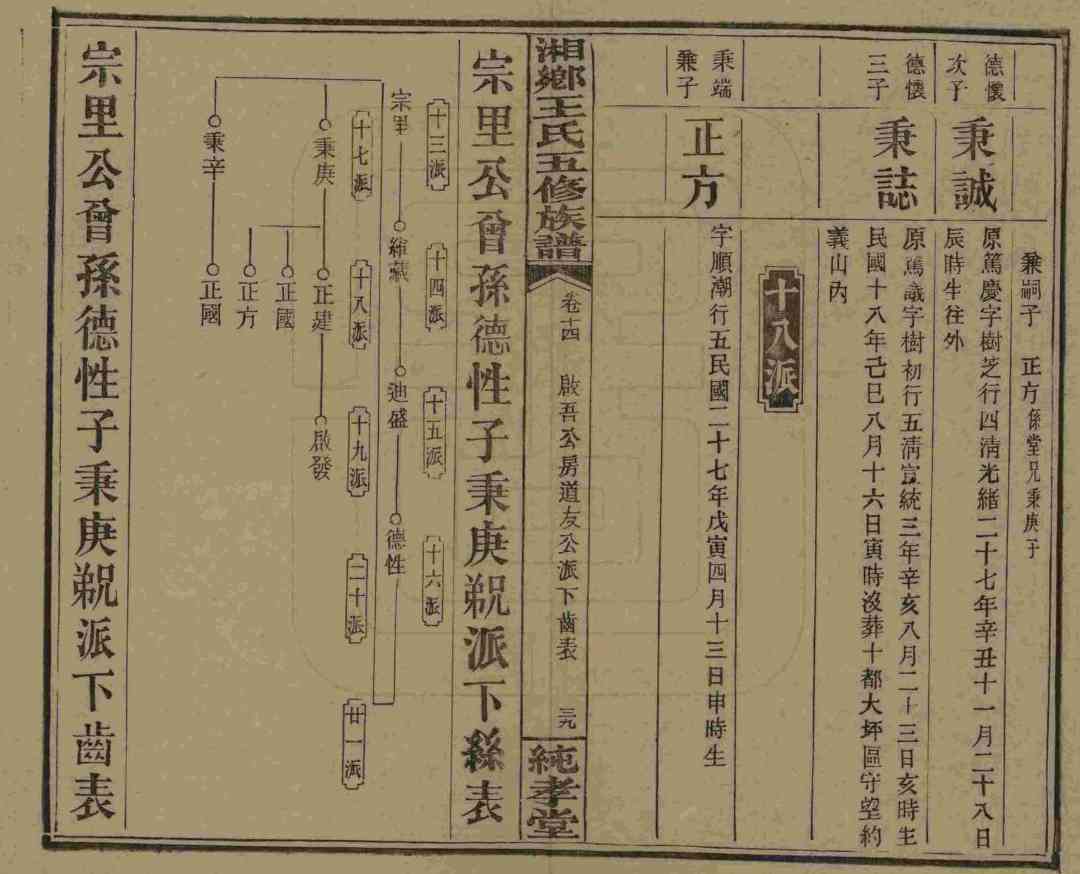 兼嗣子 正方係堂兄秉庚子
德懷次子
秉誠
原篤慶字樹芝行四淸光緒二十七年辛丑十一月二十八日
辰時生往外
德懷三子
秉誌
原篤議字樹初行五淸宣統三年辛亥八月二十三日亥時生
民國十八年己巳八月十六日寅時沒葬十都大坪區守望約
義山內
十八派
秉端兼子
正方
字順潮行五民國二十七年戊寅四月十三日申時生
湘鄕王氏五修族譜
卷十四 啟吾公房道友公派下齒表 三九
純孝堂
宗里公曾孫德性子秉庚 派下系表
十三派 十四派 十五派 十六派
宗里 維藏 迪盛 德性
十七派 十八派 十九派 二十派 廿一派
秉庚 正建 啟發
正國
正方
秉辛 正國
宗里公曾孫德性子秉庚 派下齒表